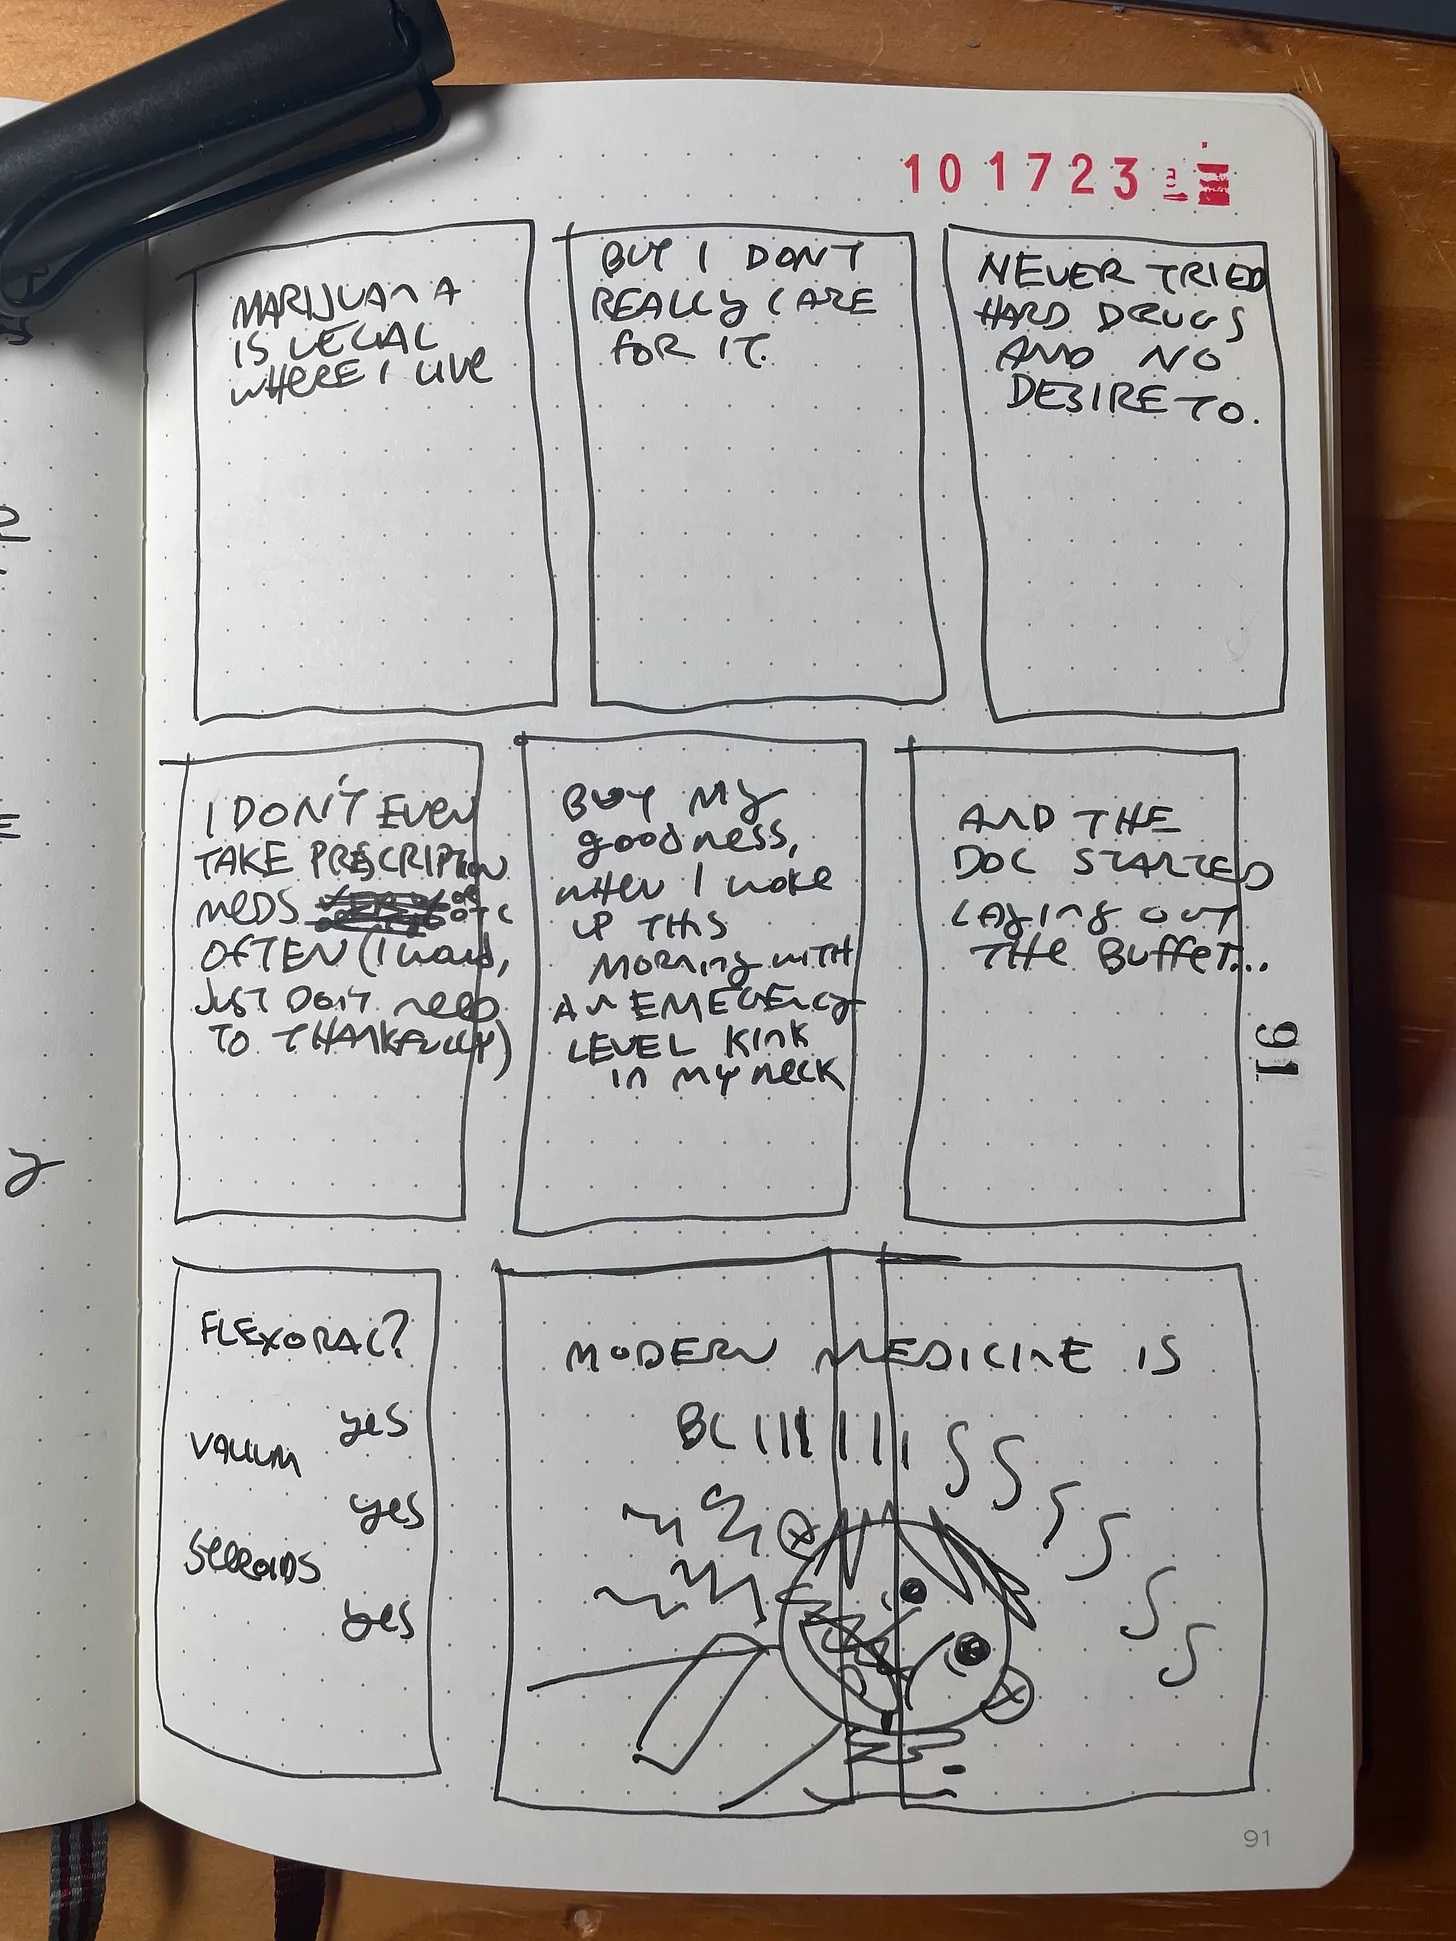 101723
MARIJUANA
IS LEGAL
WHERE I LIVE
BUT I DON'T
REALLY CARE
FOR IT.
NEVER TRIED
HARD DRUGS
AND NO
DESIRE TO.
I DON'T EVEN
TAKE PRESCRIPTION
MEDS OR OTC
OFTEN (I would,
JUST DON'T NEED
TO THANKFULLY)
BUT MY
goodness,
WHEN I WOKE
UP THIS
MORNING WITH
AN EMEGENCY
LEVEL KINK
IN MY NECK
AND THE
DOC STARTED
LAYING OUT
THE BUFFET...
91
FLEXORAL?
yes
VALIUM
yes
STEROIDS
yes
MODERN MEDICINE IS
BLIIIIIIISSSSSS
91